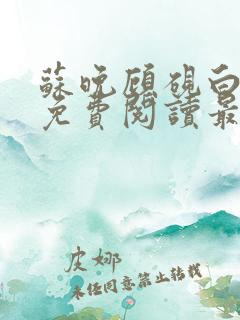 蘇晚顧硯白
免費閱讀最
皮娜
未经同意禁止转载